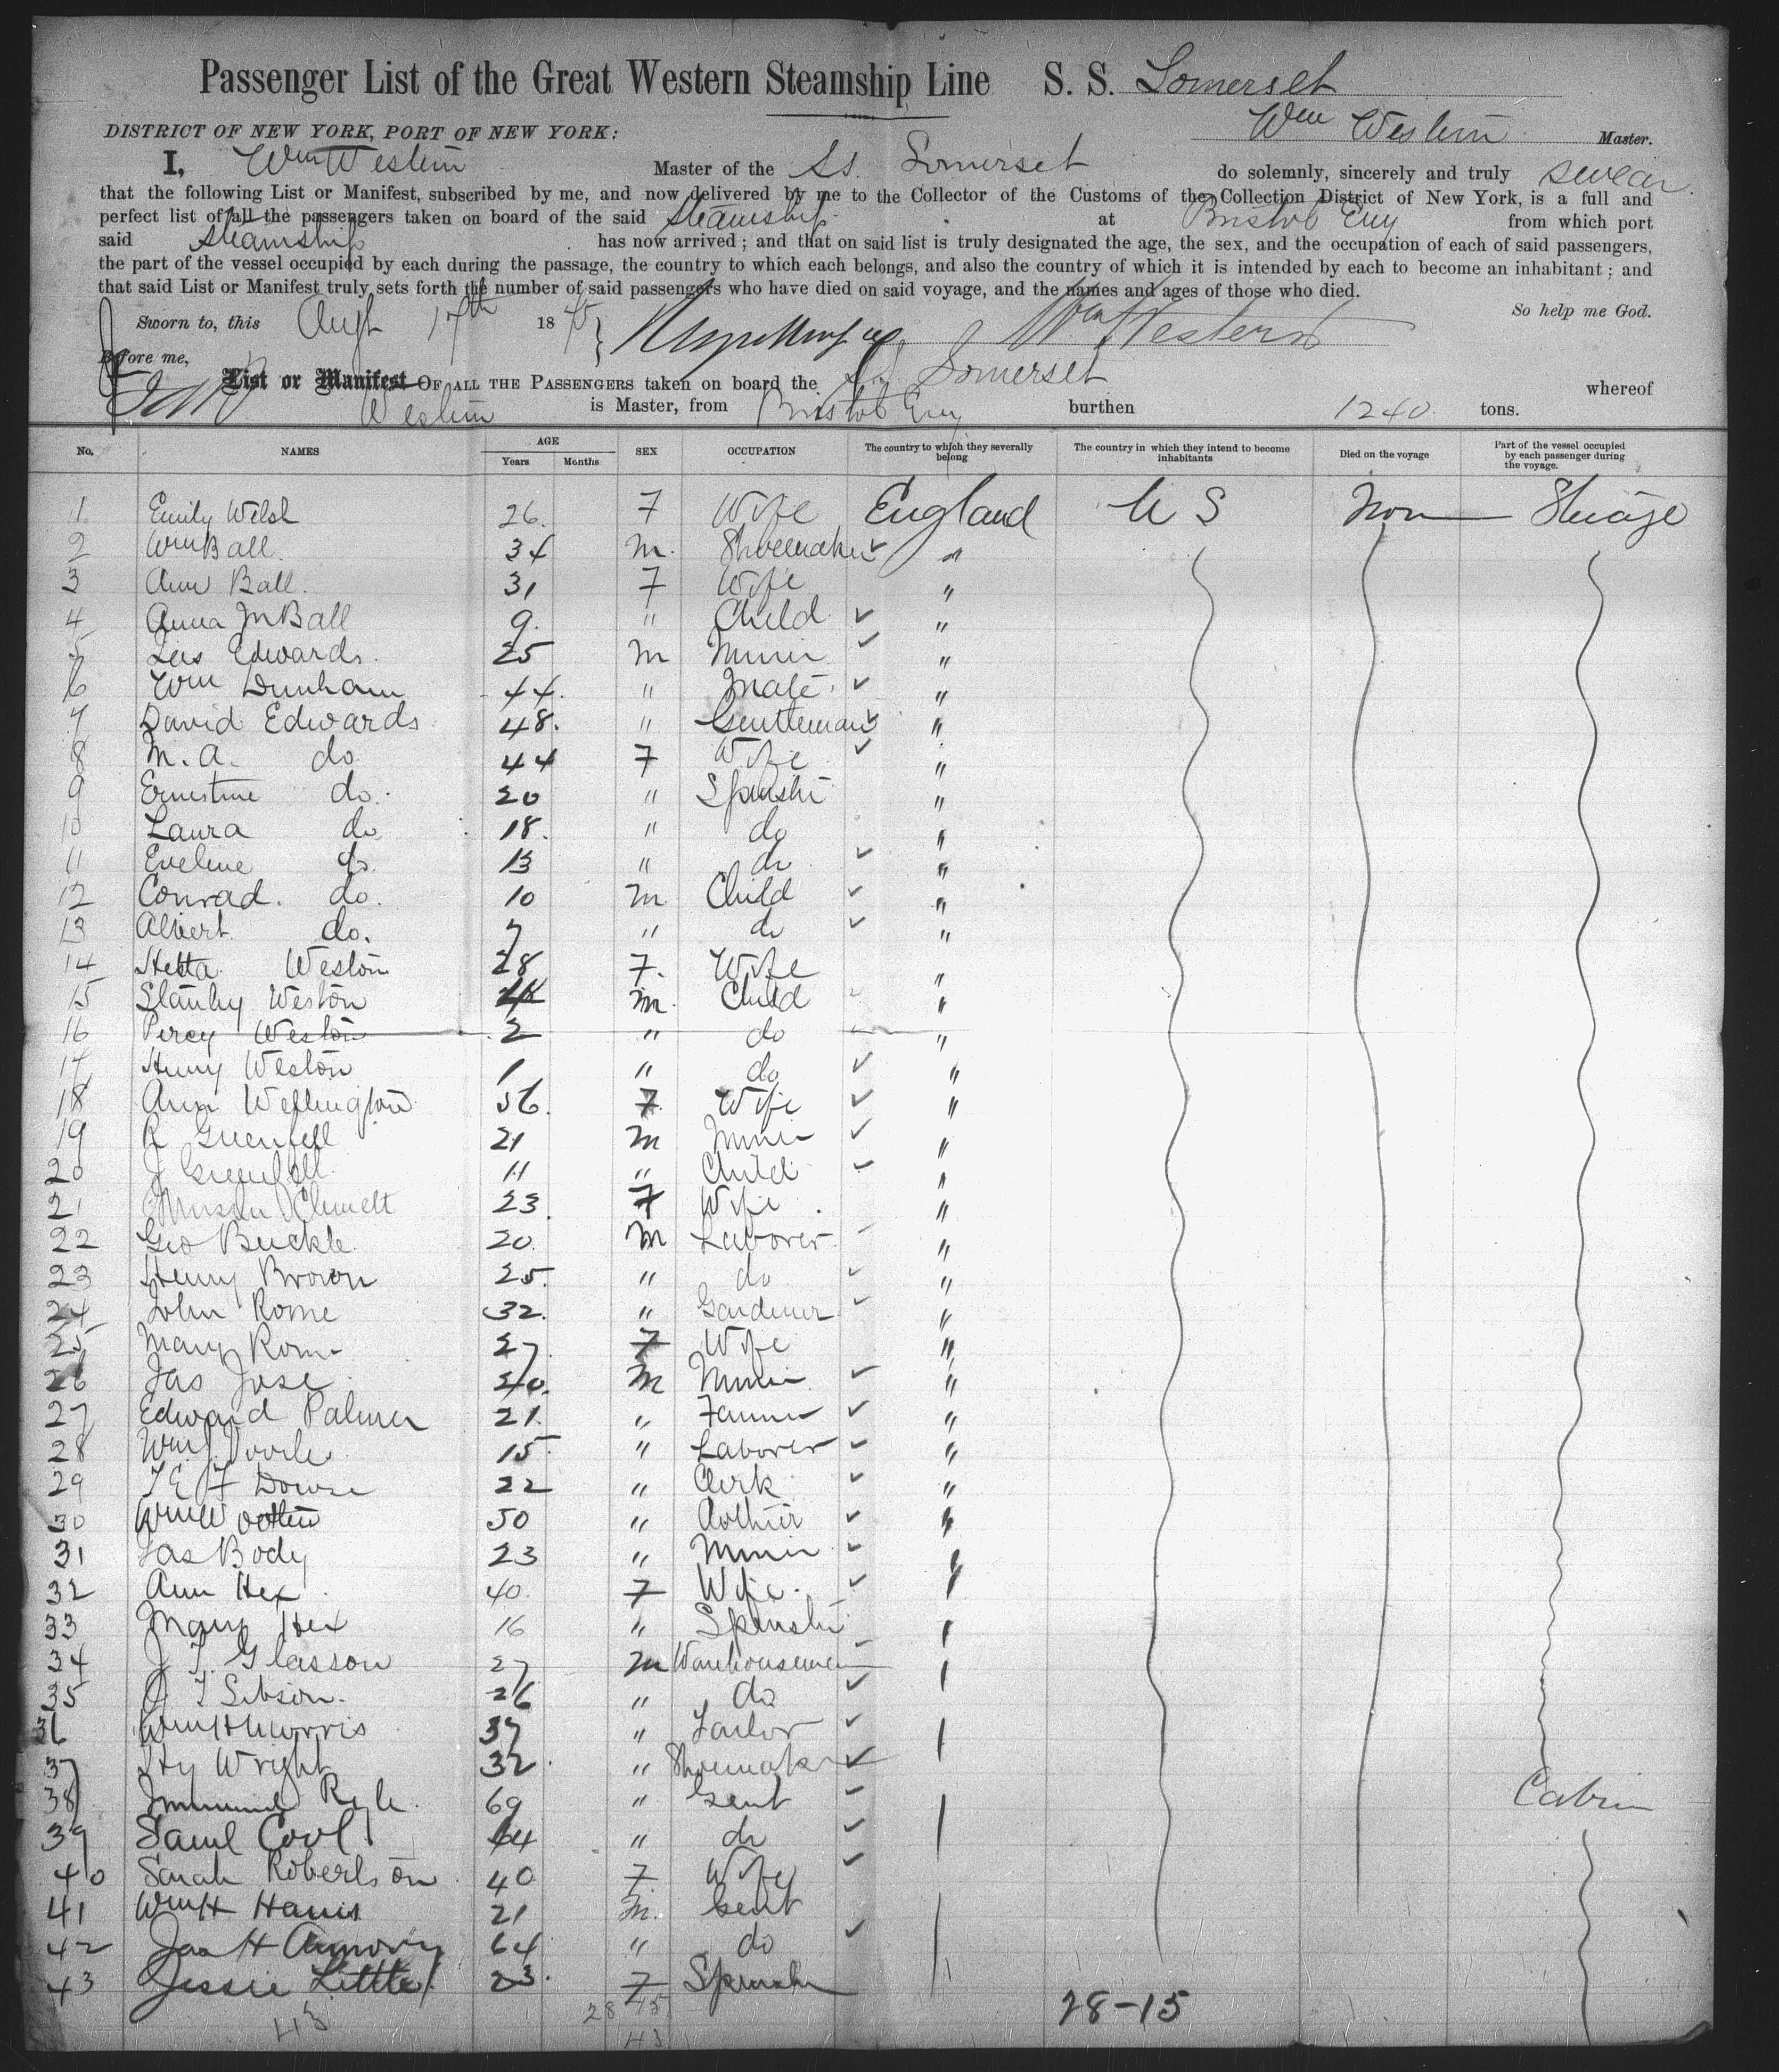 Passenger List of the Great Western Steamship Line S. S. Somerset
DISTRICT OF NEW YORK, PORT OF NEW YORK: Wm Western Master.
I, Wm Western Master of the SS. Somerset do solemnly, sincerely and truly swear
that the following List or Manifest, subscribed by me, and now delivered by me to the Collector of the Customs of the Collection District of New York, is a full and
perfect list of all the passengers taken on board of the said Steamship at Bristol Eng from which port
said Steamship has now arrived; and that on said list is truly designated the age, the sex, and the occupation of each of said passengers,
the part of the vessel occupied by each during the passage, the country to which each belongs, and also the country of which it is intended by each to become an inhabitant; and
that said List or Manifest truly sets forth the number of said passengers who have died on said voyage, and the names and ages of those who died.
So help me God.
Sworn to, this Augt 17th 18 Wm Western
Before me,
List or Manifest OF ALL THE PASSENGERS taken on board the SS Somerset whereof
Western is Master, from Bristol Eng burthen 1240 tons.
No. NAMES AGE Years Months SEX OCCUPATION The country to which they severally belong The country in which they intend to become inhabitants Died on the voyage Part of the vessel occupied by each passenger during the voyage.
1 Emily Welsh 26 F Wife England U S Non Steerage
2 Wm Ball 34 M. Shoemaker "
3 Ann Ball. 31 F Wife "
4 Anna M Ball 9. " Child "
5 Edwards. 25 M Miner "
6 Wm Dunham 44. " Mate "
7 David Edwards 48. " Gentleman "
8 M. A. do 44 F Wife "
9 Ernestine do. 20 " Spinster "
10 Laura do 18. " do "
11 Eveline do. 13 " do "
12 Conrad. do. 10 M Child "
13 Albert do. 7 " do "
14 Hetta Weston 28 F. Wife "
15 Stanley Weston M. Child "
16 Percy Weston 2 " do "
17 Henry Weston 1 " do "
18 Ann Wellington 56. F Wife "
19 R Grenfell 21 M Miner "
20 J Grenfell 11 " Child "
21 23. F Wife "
22 Geo Buckle 20. M Laborer "
23 Henry Brown 25. " do "
24 John Rome 32. " Gardener "
25 Mary Rome 27 F Wife "
26 Jas Jose M Miner "
27 Edward Palmer 21. " Farmer "
28 Wm J 15 " Laborer "
29 T E F Dowse 22 " Clerk "
30 Wm Wotten 50 " "
31 Jas Body 23 " Miner "
32 Ann Hex 40. F Wife. "
33 Mary Hex 16 " Spinster
34 J T. Glasson 27 M Warehouseman
35 T Sibson. 26 " do
36 Wm H Morris 37 " Tailor
37 Hy Wright 32. " Shoemaker
38 69 " Gent Cabin
39 Saml 64 " do
40 Sarah Robertson 40 F Wife
41 Wm H Harris 21 M. Gent
42 Jas H 64 " do
43 Jessie Little 23. F Spinster
43 28 15 28-15
43